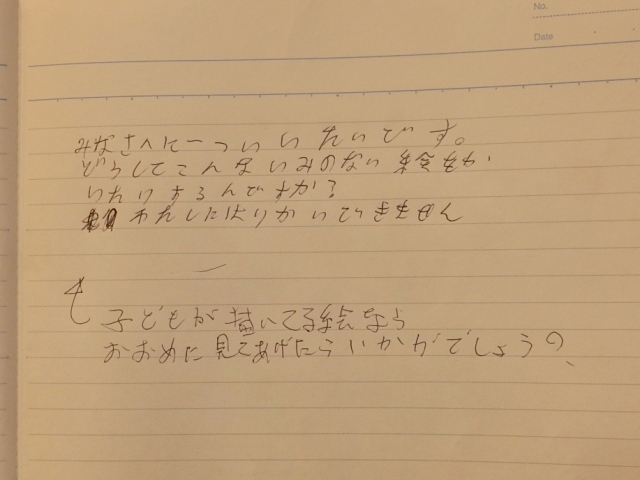 No.
Date
みなさんに一ついいたいです。
どうしてこんないみのない絵をか
いたりするんですか?
わたしにはりかいできません
子どもが描いてる絵なら
おおめに見てあげたらいかがでしょうの、